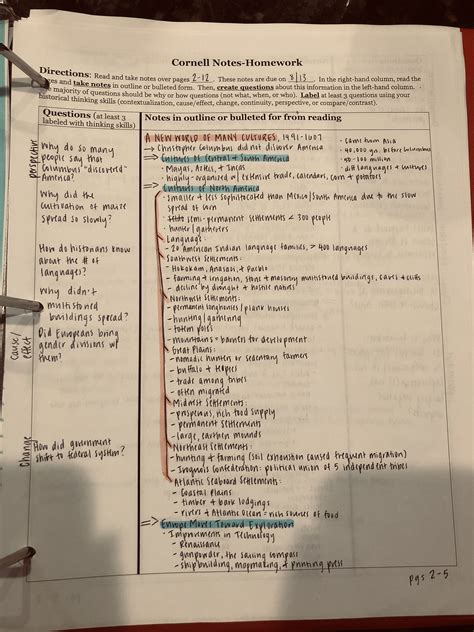 Cornell Notes-Homework
Directions: Read and take notes over pages 2-12. These notes are due on 8/13. In the right-hand column, read the
pages and take notes in outline or bulleted form. Then, create questions about this information in the left-hand column.
majority of questions should be why or how questions (not what, when, or who). Label at least 3 questions using your
historical thinking skills (contextualization, cause/effect, change, continuity, perspective, or compare/contrast).
Questions (at least 3
labeled with thinking skills)
perspective
Why do so many
people say that
Columbus "discovered"
America?
Why did the
cultivation of maize
spread so slowly?
How do historians know
about the # of
languages?
Why didn't
multistoried
buildings spread?
Cause/
effect
Did Europeans bring
gender divisions w/
them?
Change
How did government
shift to federal system?
Notes in outline or bulleted for from reading
A NEW WORLD OF MANY CULTURES, 1491-1607
- Christopher Columbus did not discover America
- came from Asia
- 40,000 yrs. before Columbus
- 50-100 million
- diff languages + cultures
Cultures of Central + South America
- Mayas, Aztecs, + Incas
- highly-organized w/ extensive trade, calendars, corn + potatoes
Cultures of North America
- smaller + less sophisticated than Mexico/South America due to the slow
spread of corn
- semi-permanent settlements < 300 people
- hunter/gatherers
Language:
- 20 American Indian language families, > 400 languages
Southwest Settlements:
- Hokokam, Anasazi, + Pueblo
- farming + irrigation, stone + masonry multistoried buildings, caves + cliffs
- decline by drought + hostile natives
Northwest Settlements:
- permanent longhouses/plank houses
- hunting/gathering
- totem poles
- mountains = barrier for development
Great Plains:
- nomadic hunters or sedentary farmers
- buffalo + teepees
- trade among tribes
- often migrated
Midwest Settlements:
- prosperous, rich food supply
- permanent settlements
- large, earthen mounds
Northeast Settlements:
- hunting + farming (soil exhaustion caused frequent migration)
- Iroquois Confederation: political union of 5 independent tribes
Atlantic Seaboard Settlements:
- Coastal Plains
- timber + bark lodgings
- rivers + Atlantic Ocean = rich sources of food
Europe Moves Toward Exploration
- Improvements in Technology
- Renaissance
- gunpowder, the sailing compass
- shipbuilding, mapmaking, + printing press
pgs 2-5